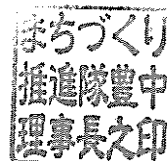 まちづくり
推進隊豊中
理事長之印